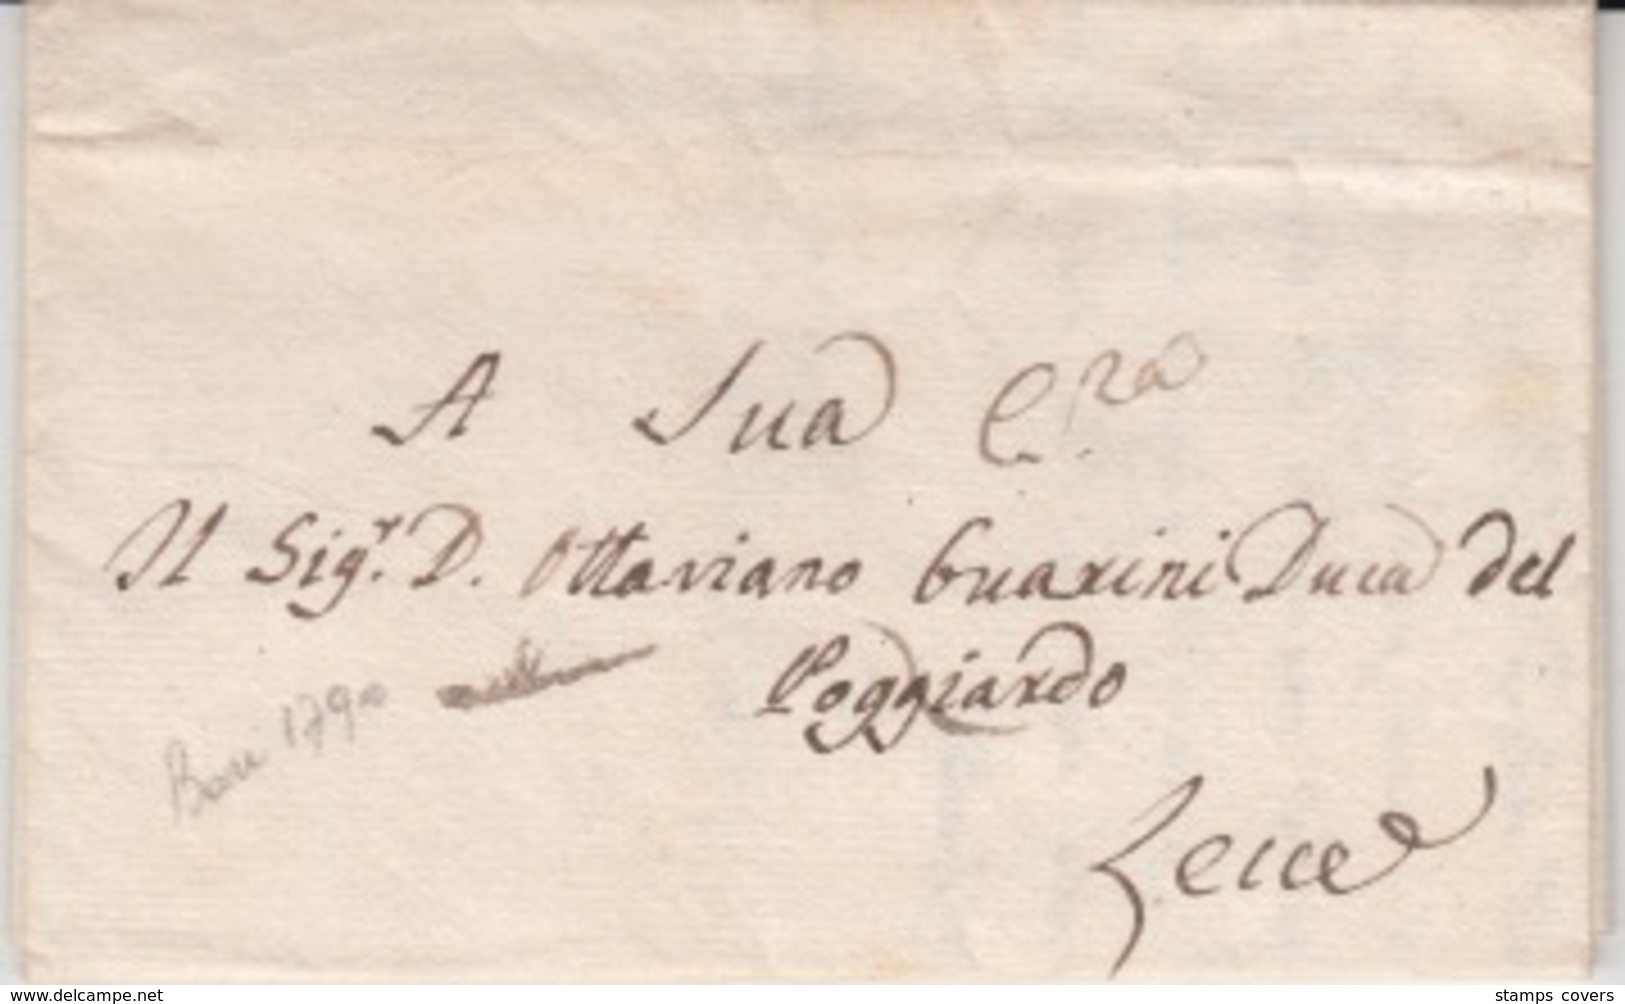 A Sua E.za
Il Sig.r D. Ottaviano Guarini Duca del
Poggiardo
Bari 1790
Lecce
www.delcampe.net
stamps covers